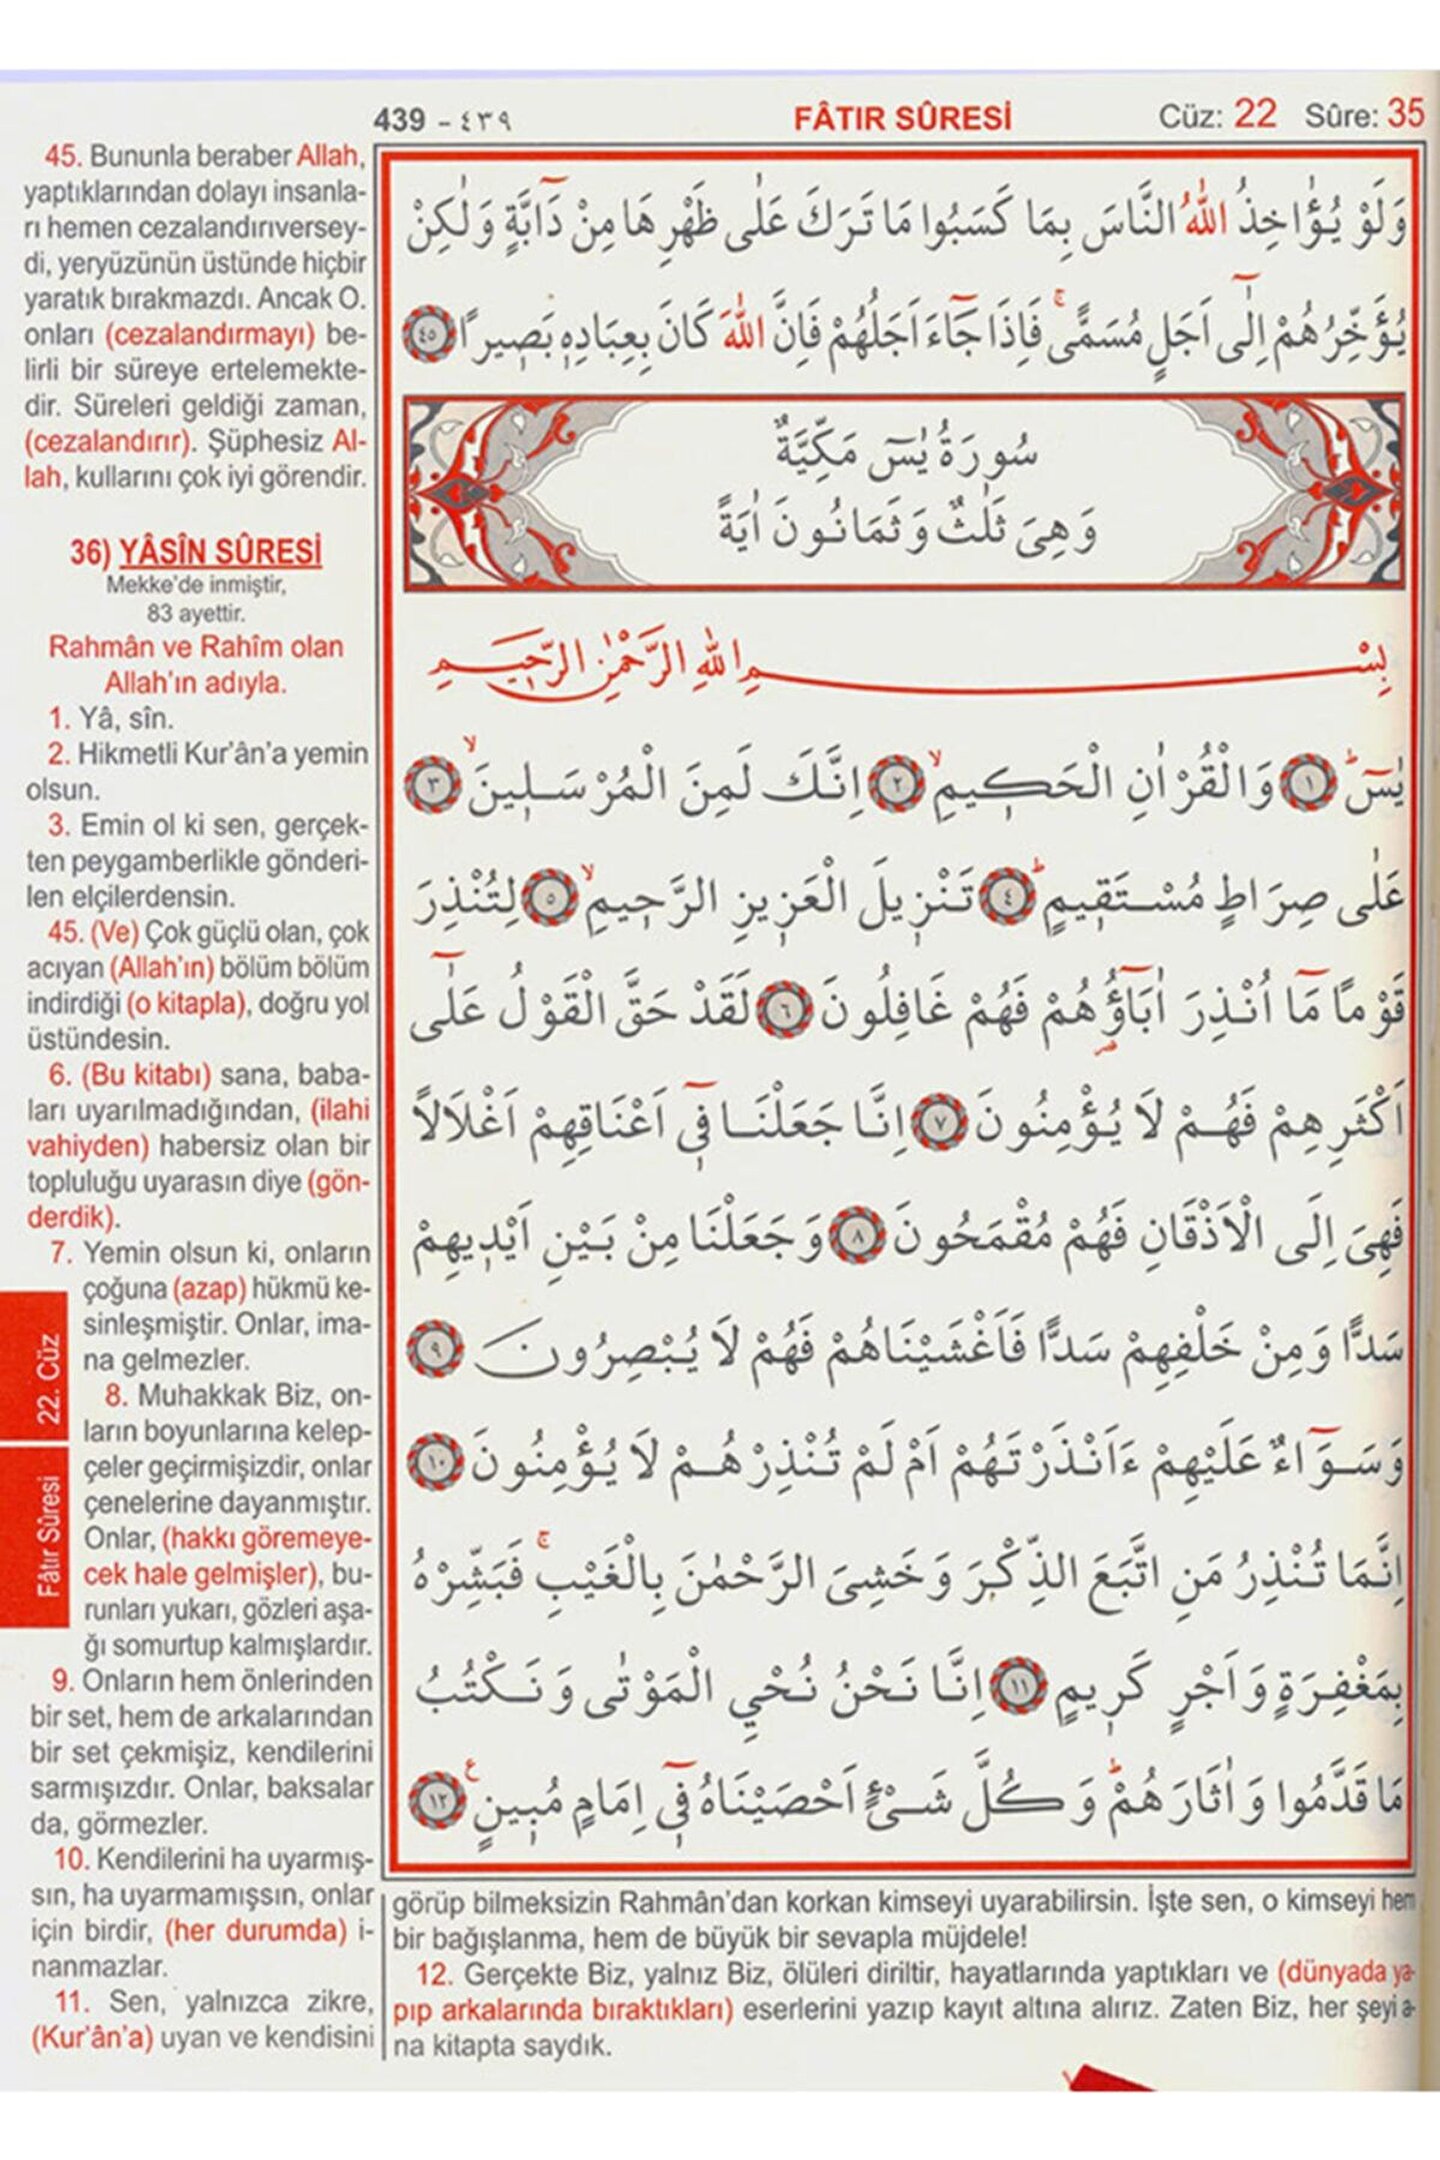 439 - ٤٣٩
FÂTIR SÛRESİ
Cüz: 22 Sûre: 35
45. Bununla beraber Allah,
yaptıklarından dolayı insanla-
rı hemen cezalandırıversey-
di, yeryüzünün üstünde hiçbir
yaratık bırakmazdı. Ancak O.
onları (cezalandırmayı) be-
lirli bir süreye ertelemekte-
dir. Süreleri geldiği zaman,
(cezalandırır). Şüphesiz Al-
lah, kullarını çok iyi görendir.
36) YÂSÎN SÛRESİ
Mekke'de inmiştir,
83 ayettir.
Rahmân ve Rahîm olan
Allah'ın adıyla.
1. Yâ, sîn.
2. Hikmetli Kur'ân'a yemin
olsun.
3. Emin ol ki sen, gerçek-
ten peygamberlikle gönderi-
len elçilerdensin.
45. (Ve) Çok güçlü olan, çok
acıyan (Allah'ın) bölüm bölüm
indirdiği (o kitapla), doğru yol
üstündesin.
6. (Bu kitabı) sana, baba-
ları uyarılmadığından, (ilahi
vahiyden) habersiz olan bir
topluluğu uyarasın diye (gön-
derdik).
7. Yemin olsun ki, onların
çoğuna (azap) hükmü ke-
sinleşmiştir. Onlar, ima-
na gelmezler.
8. Muhakkak Biz, on-
ların boyunlarına kelep-
çeler geçirmişizdir, onlar
çenelerine dayanmıştır.
Onlar, (hakkı göremeye-
cek hale gelmişler), bu-
runları yukarı, gözleri aşa-
ğı somurtup kalmışlardır.
9. Onların hem önlerinden
bir set, hem de arkalarından
bir set çekmişiz, kendilerini
sarmışızdır. Onlar, baksalar
da, görmezler.
10. Kendilerini ha uyarmış-
sın, ha uyarmamışsın, onlar
için birdir, (her durumda) i-
nanmazlar.
11. Sen, yalnızca zikre,
(Kur'ân'a) uyan ve kendisini
görüp bilmeksizin Rahmân'dan korkan kimseyi uyarabilirsin. İşte sen, o kimseyi hem
bir bağışlanma, hem de büyük bir sevapla müjdele!
12. Gerçekte Biz, yalnız Biz, ölüleri diriltir, hayatlarında yaptıkları ve (dünyada ya-
pıp arkalarında bıraktıkları) eserlerini yazıp kayıt altına alırız. Zaten Biz, her şeyi a-
na kitapta saydık.
22. Cüz
Fâtır Sûresi
وَلَوْ يُؤَاخِذُ اللّٰهُ النَّاسَ بِمَا كَسَبُوا مَا تَرَكَ عَلٰى ظَهْرِهَا مِنْ دَٓابَّةٍ وَلٰكِنْ
يُؤَخِّرُهُمْ اِلٰٓى اَجَلٍ مُسَمًّىۚ فَاِذَا جَٓاءَ اَجَلُهُمْ فَاِنَّ اللّٰهَ كَانَ بِعِبَادِهٖ بَصٖيرًا ٤٥
سُورَةُ يٰسٓ مَكِّيَّةٌ
وَهِىَ ثَلٰثٌ وَثَمَانُونَ اٰيَةً
بِسْمِ اللّٰهِ الرَّحْمٰنِ الرَّحٖيمِ
يٰسٓۜ ١ وَالْقُرْاٰنِ الْحَكٖيمِۙ ٢ اِنَّكَ لَمِنَ الْمُرْسَلٖينَۙ ٣
عَلٰى صِرَاطٍ مُسْتَقٖيمٍۜ ٤ تَنْزٖيلَ الْعَزٖيزِ الرَّحٖيمِۙ ٥ لِتُنْذِرَ
قَوْمًا مَٓا اُنْذِرَ اٰبَٓاؤُ۬هُمْ فَهُمْ غَافِلُونَ ٦ لَقَدْ حَقَّ الْقَوْلُ عَلٰٓى
اَكْثَرِهِمْ فَهُمْ لَا يُؤْمِنُونَ ٧ اِنَّا جَعَلْنَا فٖٓى اَعْنَاقِهِمْ اَغْلَالًا
فَهِىَ اِلَى الْاَذْقَانِ فَهُمْ مُقْمَحُونَ ٨ وَجَعَلْنَا مِنْ بَيْنِ اَيْدٖيهِمْ
سَدًّا وَمِنْ خَلْفِهِمْ سَدًّا فَاَغْشَيْنَاهُمْ فَهُمْ لَا يُبْصِرُونَ ٩
وَسَوَٓاءٌ عَلَيْهِمْ ءَاَنْذَرْتَهُمْ اَمْ لَمْ تُنْذِرْهُمْ لَا يُؤْمِنُونَ ١٠
اِنَّمَا تُنْذِرُ مَنِ اتَّبَعَ الذِّكْرَ وَخَشِىَ الرَّحْمٰنَ بِالْغَيْبِۚ فَبَشِّرْهُ
بِمَغْفِرَةٍ وَاَجْرٍ كَرٖيمٍ ١١ اِنَّا نَحْنُ نُحْيِ الْمَوْتٰى وَنَكْتُبُ
مَا قَدَّمُوا وَاٰثَارَهُمْۜ وَكُلَّ شَىْءٍ اَحْصَيْنَاهُ فٖٓى اِمَامٍ مُبٖينٍ ١٢ ع